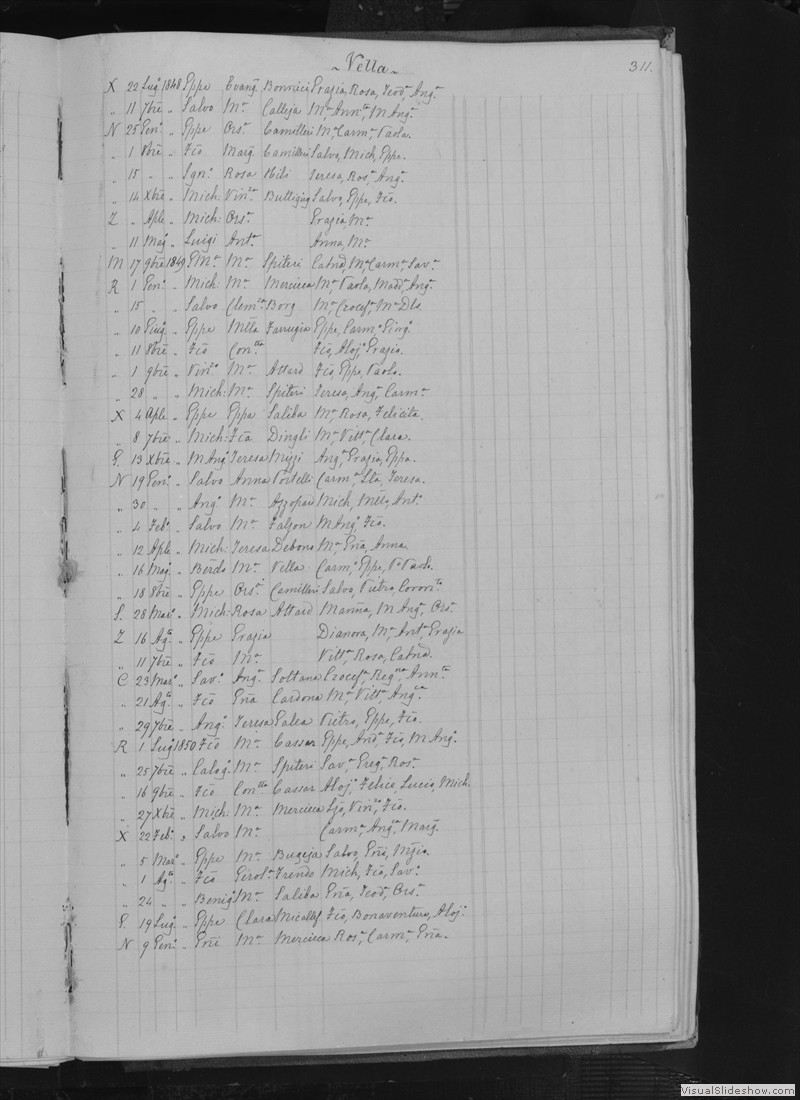 ~ Vella ~
311.
X 22 Lugº 1848 Eppe Evangª Bonnici Grazia, Rosa, Teodª, Angª
„ 11 7bre „ Salvo Mª Calleja Mª Annta, M Angª
N 25 Genº „ Eppe Orsª Camilleri Mª, Carmª, Paola.
„ 1 8bre „ Fcõ Margª Camilleri Salvo, Mich, Eppe.
„ 15 „ „ Ignº Rosa Hili Teresa, Rosª, Angª
„ 14 Xbre „ Mich: Vinza Buttigieg Salvo, Eppe, Fcõ.
Z „ Aple „ Mich: Orsª Grazia, Mª
„ 11 Magº „ Luigi Antª Anna, Mª
M 17 9bre 1849 GMª Mª Spiteri Catnd, Mª Carmª, Savª
R 1 Genº „ Mich: Mª Mercieca Mª Paola, Madª, Angª
„ 15 „ „ Salvo Clemta Borg Mª, Crocefª, Mª Dls.
„ 10 Giugº „ Eppe Mtta Farrugia Eppe, Carmª
„ 11 8bre „ Fcõ Contta Fcõ, Alojº, Grazia.
„ 1 9bre „ Vinzº Mª Attard Fcõ, Eppe, Paolo.
„ 28 „ „ Mich: Mª Spiteri Teresa, Angª, Carmª
X 4 Aple „ Eppe Eppa Saliba Mª Rosa, Felicita.
„ 8 7bre „ Mich: Fca Dingli Mª, Vittª, Clara.
G. 13 Xbre „ M Angº Teresa Mizzi Angª, Grazia, Eppa.
N 19 Genº „ Salvo Anna Portelli Carmª, Teresa.
„ 30 „ „ Angº Mª Azzopardi Mich, Mtto, Antº
„ 4 Febº „ Salvo Mª Falzon M Angº, Fcõ.
„ 12 Aple „ Mich: Teresa Debono Mª, Gna, Anna
„ 16 Magº „ Berdo Mª Vella Carmº, Eppe, Paolo.
„ 18 8bre „ Eppe Orsª Camilleri Salvo, Pietro, Coronta
S. 28 Marº „ Mich: Rosa Attard Marina, M Angª, Orsª
Z 16 Agto „ Eppe Grazia Dianora, Mª, Antª, Grazia
„ 11 7bre „ Fcõ Mª Vittª, Rosa, Catnd.
C 23 Marº „ Savº Angª Soltana Crocefª, Regna, Annta
„ 21 Agto „ Fcõ Gna Cardona Mª, Vittª, Angca
„ 29 7bre „ Angº Teresa Galea Pietro, Eppe, Fcõ.
R 1 Lugº 1850 Fcõ Mª Cassar Eppe, Andª, Fcõ, M Angº
„ 25 7bre „ Calogº Mª Spiteri Savª, Gregº, Rosª
„ 16 9bre „ Fcõ Contta Cassar Alojº, Felice, Lucio, Mich.
„ 27 Xbre „ Mich: Mª Mercieca Vinzº, Fcõ.
X 22 Febº „ Salvo Mª Carmª, Angca, Margª
„ 5 Marº „ Eppe Mª Bugeja Salvo, Gna
„ 1 Agto „ Fcõ Gerolª Trendo Mich, Fcõ, Savª
„ 24 „ „ Benigº Mª Saliba Gna, Teodª, Orsª
G. 19 Lugº „ Eppe Clara Micallef Fcõ, Bonaventura, Alojº
N 9 Genº „ Gni Mª Mercieca Rosª, Carmª, Gna.
VisualSlideshow.com